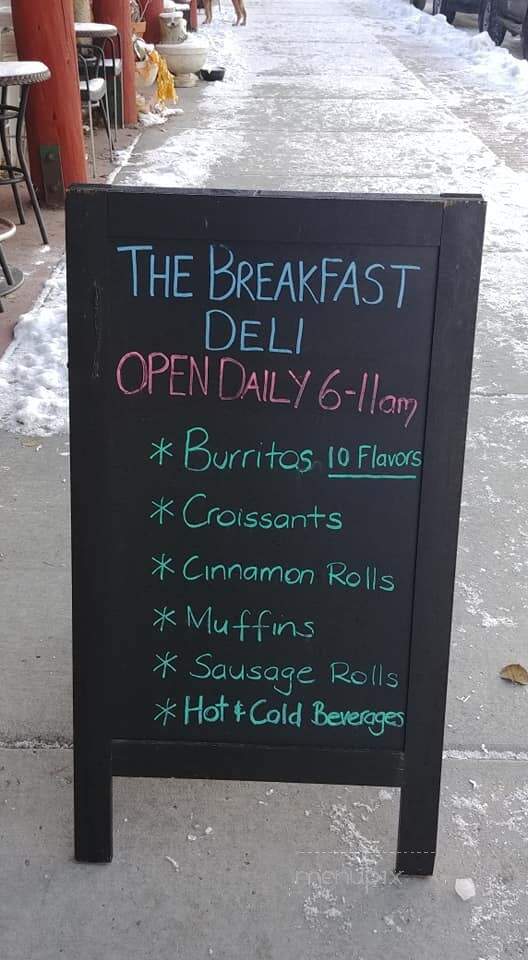 THE BREAKFAST
DELI
OPEN DAILY 6-11am
* Burritos 10 Flavors
* Croissants
* Cinnamon Rolls
* Muffins
* Sausage Rolls
* Hot & Cold Beverages
menupix